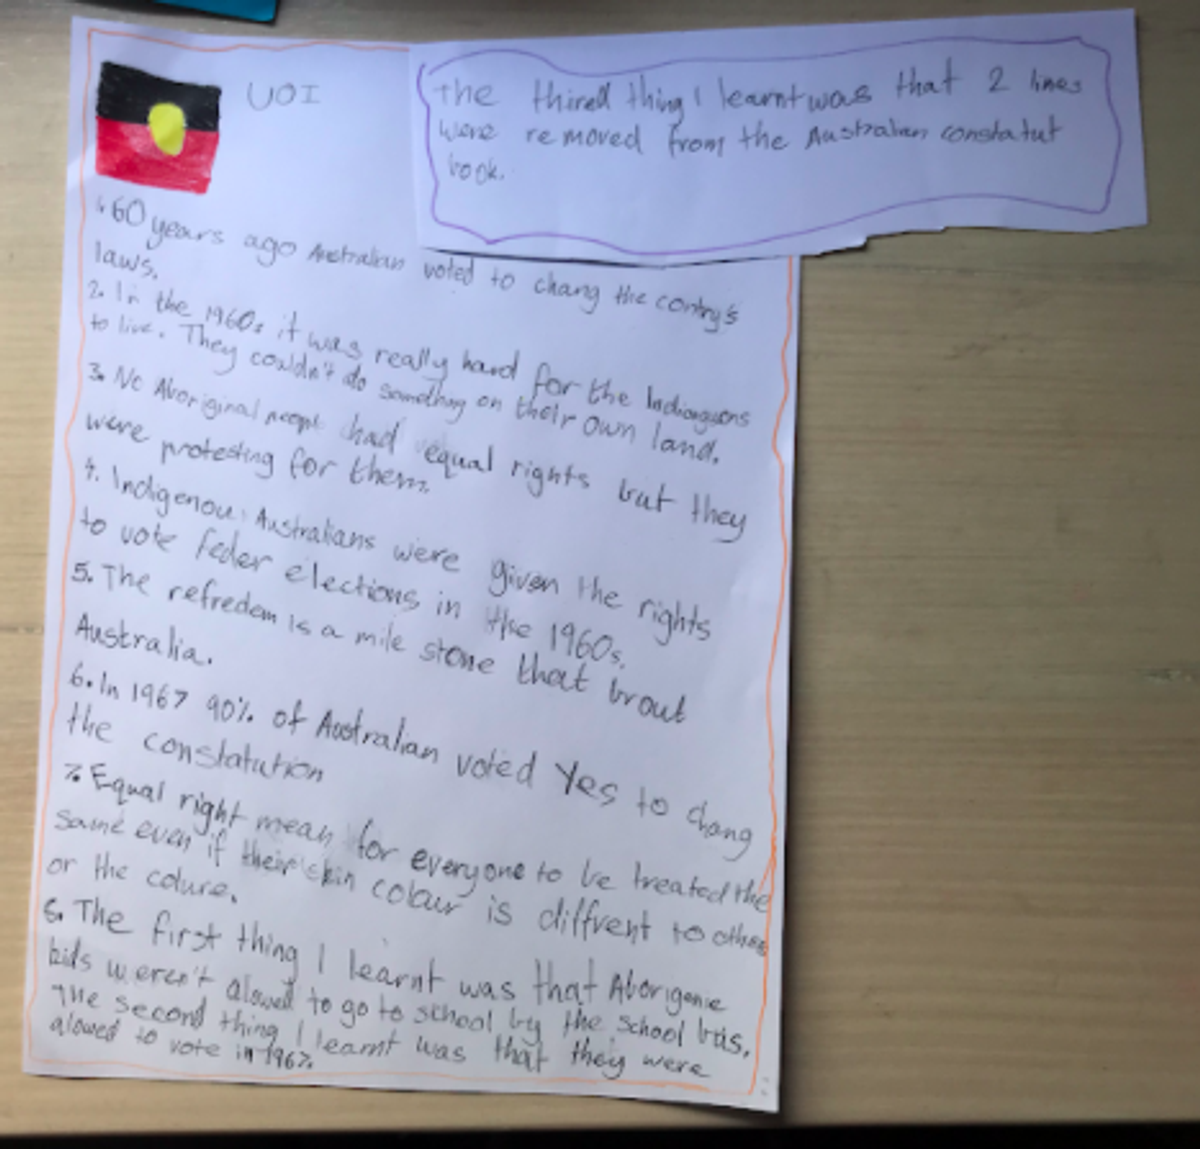 UOI
1. 60 years ago Australian voted to chang the contry's
laws.
2. In the 1960s it was really hard for the Indiangeons
to live. They couldn't do something on their own land.
3. No Aboriginal peopl had equal rights but they
were protesting for them.
4. Indigenous Australians were given the rights
to vote feder elections in the 1960s.
5. The refredem is a mile stone that brout
Australia.
6. In 1967 90% of Australian voted Yes to chang
the constatution
7. Equal right mean for everyone to be treated the
same even if their skin colour is diffrent to others
or the colure.
8. The first thing I learnt was that Aborigenie
kids weren't alowed to go to school by the school bus.
The second thing I learnt was that they were
alowed to vote in 1967.
The thired thing I learnt was that 2 lines
were removed from the Australian constatut
book.